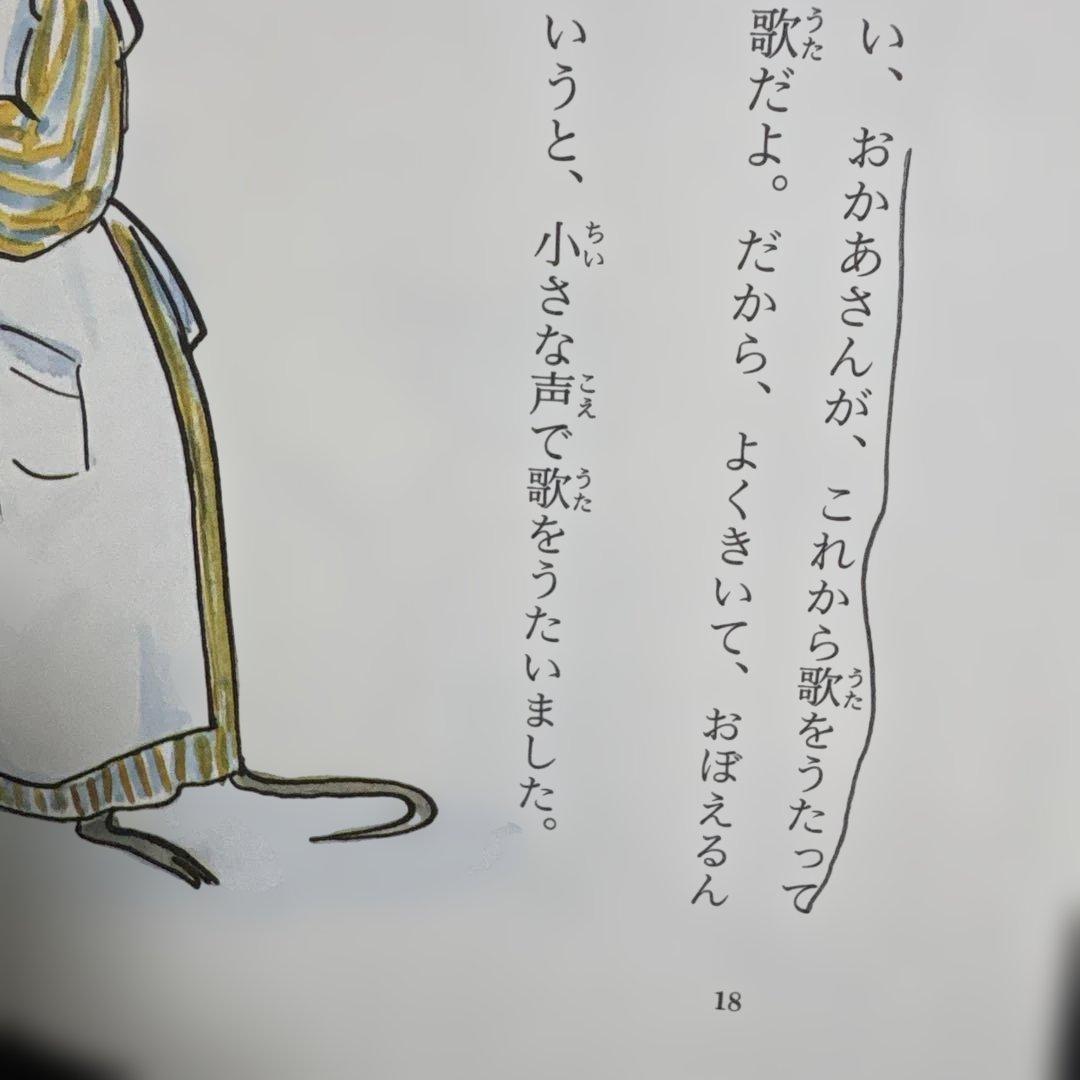 い、おかあさんが、これから歌をうたって
歌だよ。だから、よくきいて、おぼえるん
いうと、小さな声で歌をうたいました。
18